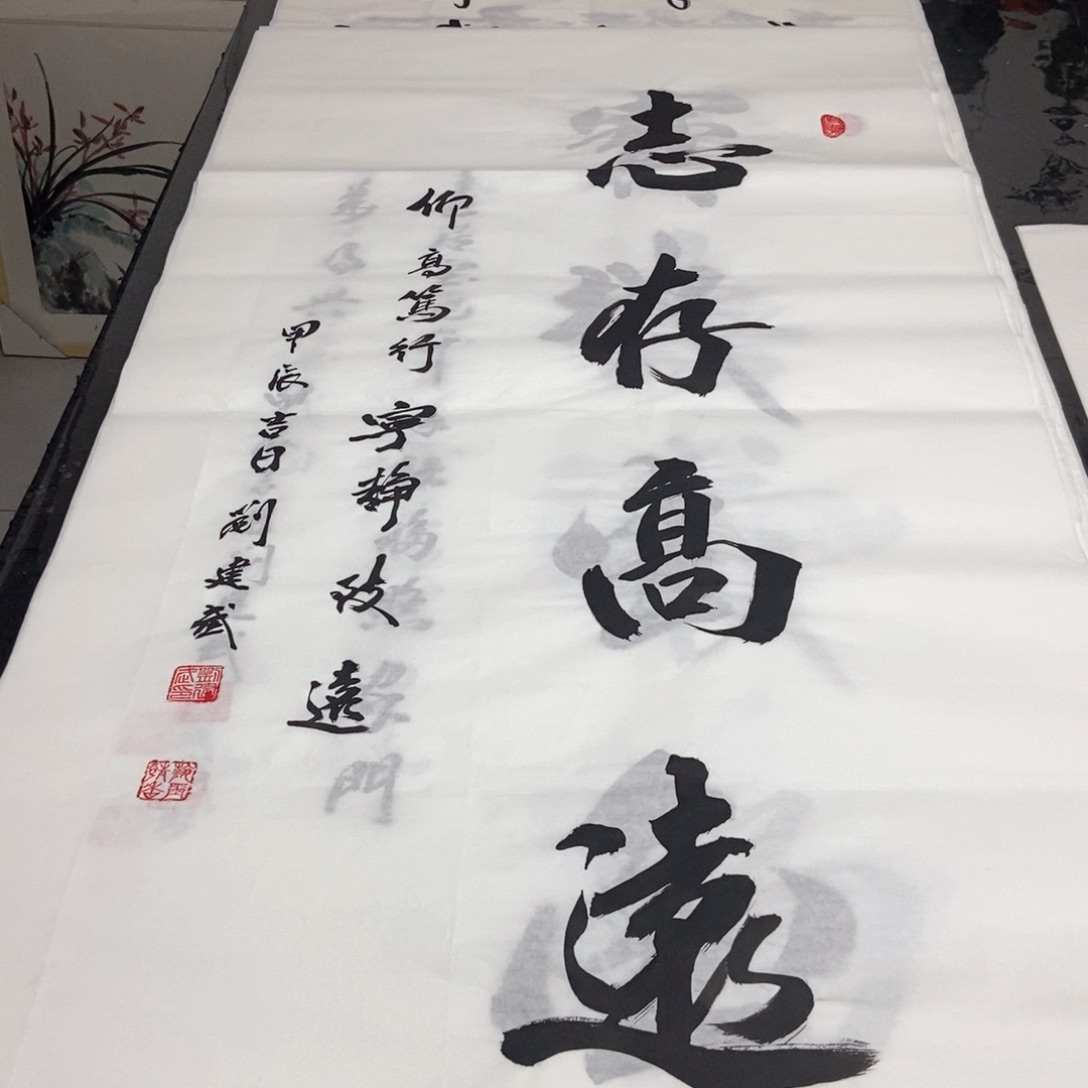 志存高遠
仰高篤行宁靜致遠
甲辰吉日劉建武